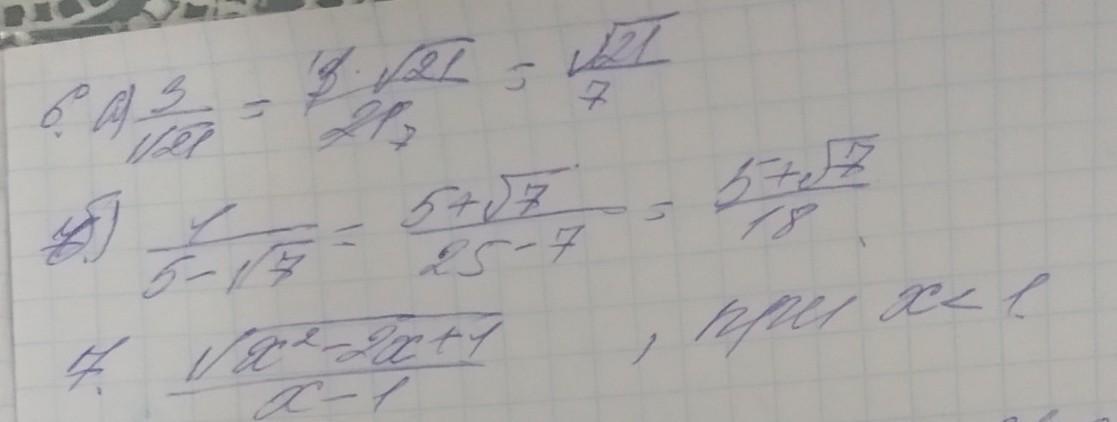 6. а) 3/√21 = 3·√21/21 = √21/7
б) 1/(5-√7) = (5+√7)/(25-7) = (5+√7)/18.
7. √(x²-2x+1)/(x-1) , при x<1.